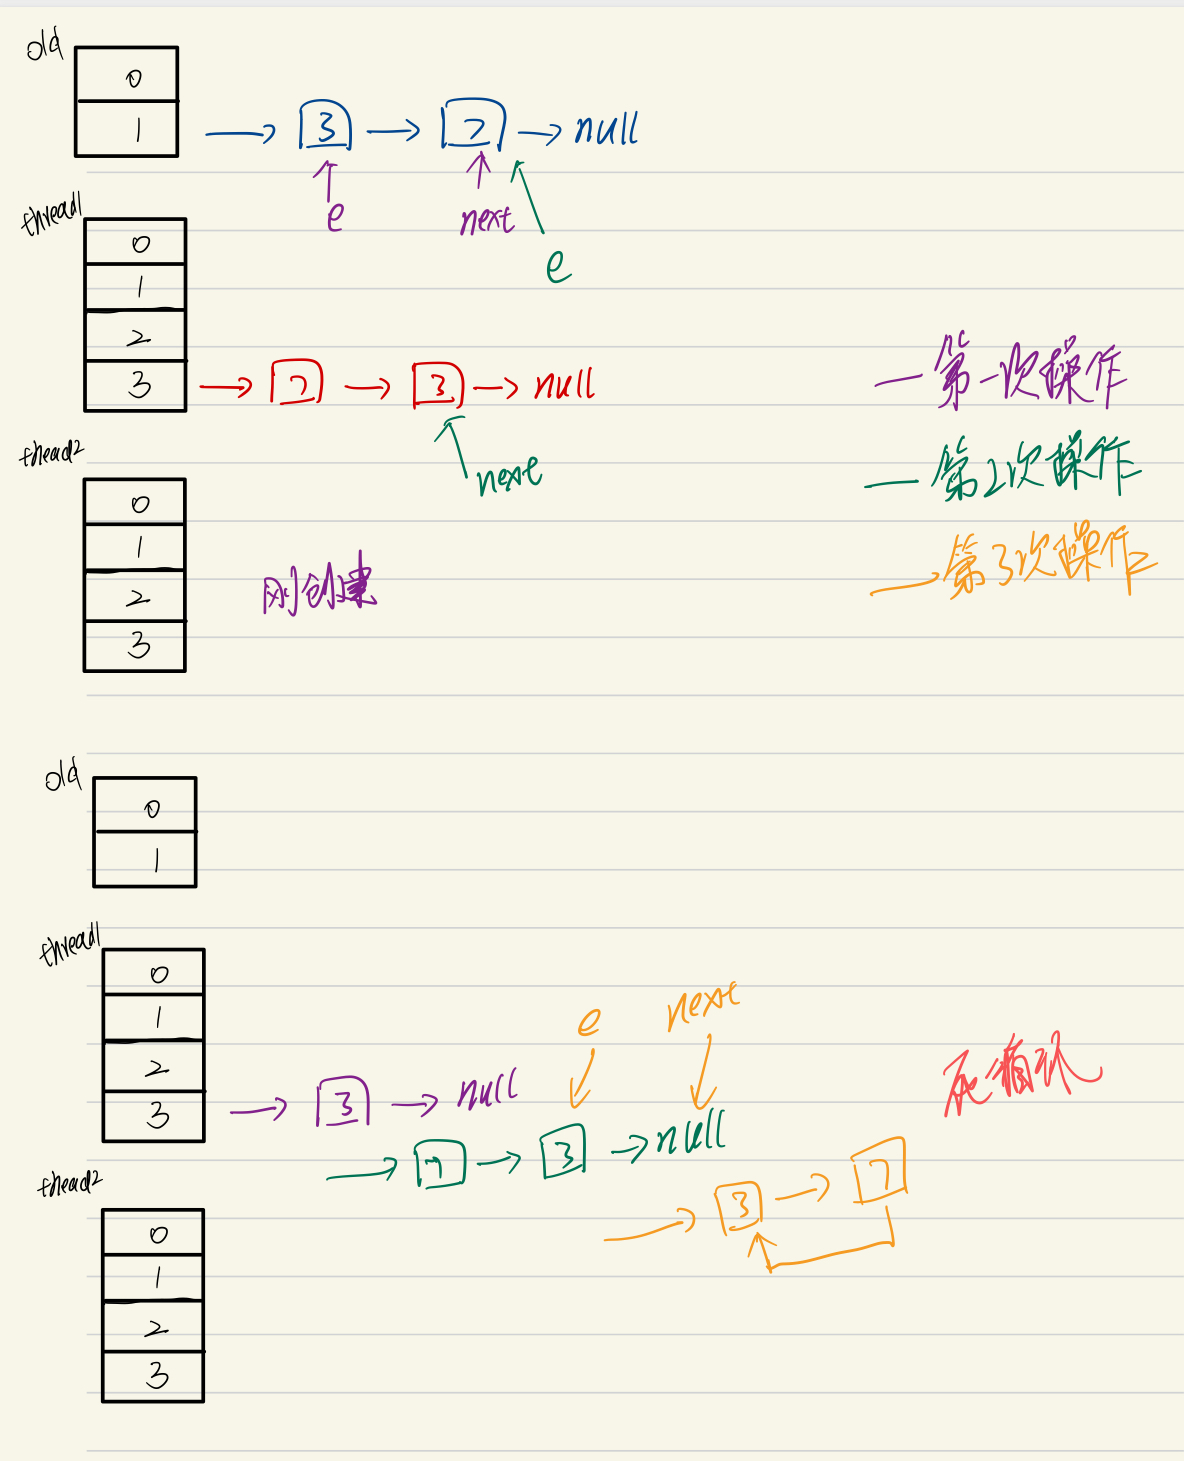 old
0
1
3
7
null
e
next
e
thread1
0
1
2
3
7
3
null
next
一 第一次操作
一 第2次操作
一 第3次操作
thead2
0
1
2
3
刚创建
old
0
1
thread1
0
1
2
3
e
next
3
null
7
3
null
3
7
thead2
0
1
2
3